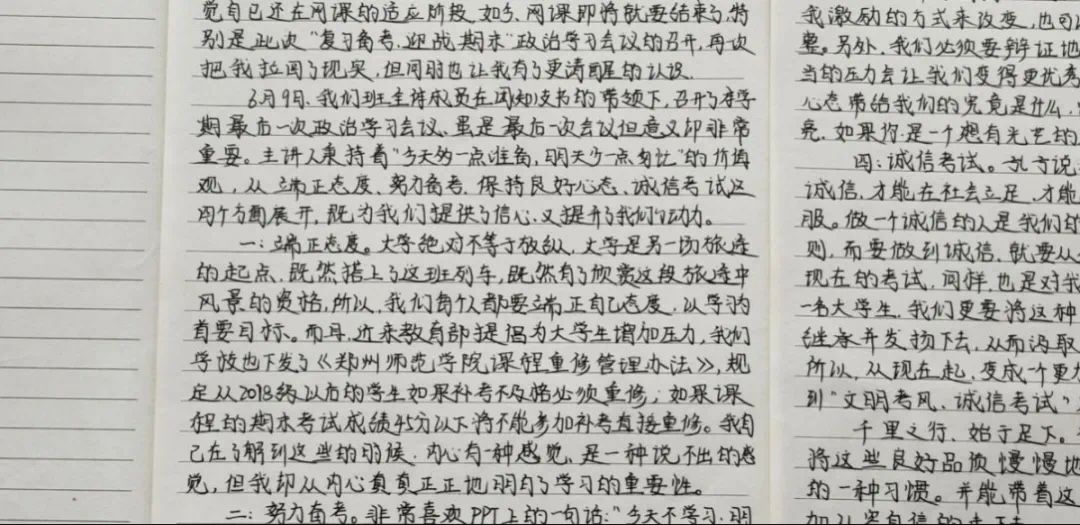 觉自己还在网课的适应阶段,如今,网课即将就要结束了,特
别是此次“复习备考,迎战期末”政治学习会议的召开,再次
把我拉回了现实,但同时也让我有了更清醒的认识。
6月9日,我们班全体成员在闻知支书的带领下,召开了本学
期最后一次政治学习会议。虽是最后一次会议但意义却非常
重要。主讲人秉持着“今天多一点准备,明天少一点”的价值
观,从端正态度、努力备考、保持良好心态、诚信考试这
四个方面展开,既为我们提供了信心,又提升了我们的动力。
一:端正态度。大学绝对不等于放纵,大学是另一切旅途
的起点,既然搭上了这班列车,既然有了欣赏这段旅途中
风景的资格,所以,我们每个人都要端正自己态度,以学习为
首要目标。而且,近来教育部提倡为大学生增加压力,我们
学校也下发了《郑州师范学院课程重修管理办法》,规
定从2018级以后的学生如果补考不及格必须重修;如果课
程的期末考试成绩45分以下将不能参加补考直接重修。我自
己在了解到这些的时候,内心有一种感觉,是一种说不出的感
觉,但我却从内心真真正正地明白了学习的重要性。
二:努力备考。非常喜欢PPT上的一句话:“今天不学习,明
我激励的方式来改变,也可
整。另外,我们必须要辩证地
当的压力会让我们变得更优秀
心态带给我们的究竟是什么,
亮,如果你是一个想有光芒的
四:诚信考试。孔子说
诚信,才能在社会立足,才能
服。做一个诚信的人是我们的
则,而要做到诚信,就要从
现在的考试,同样,也是对我
一名大学生,我们更要将这种
继承并发扬下去,从而汲取
所以,从现在起,变成一个更
到“文明考风、诚信考试”
千里之行,始于足下。
将这些良好品质慢慢地
的一种习惯。并能带着这